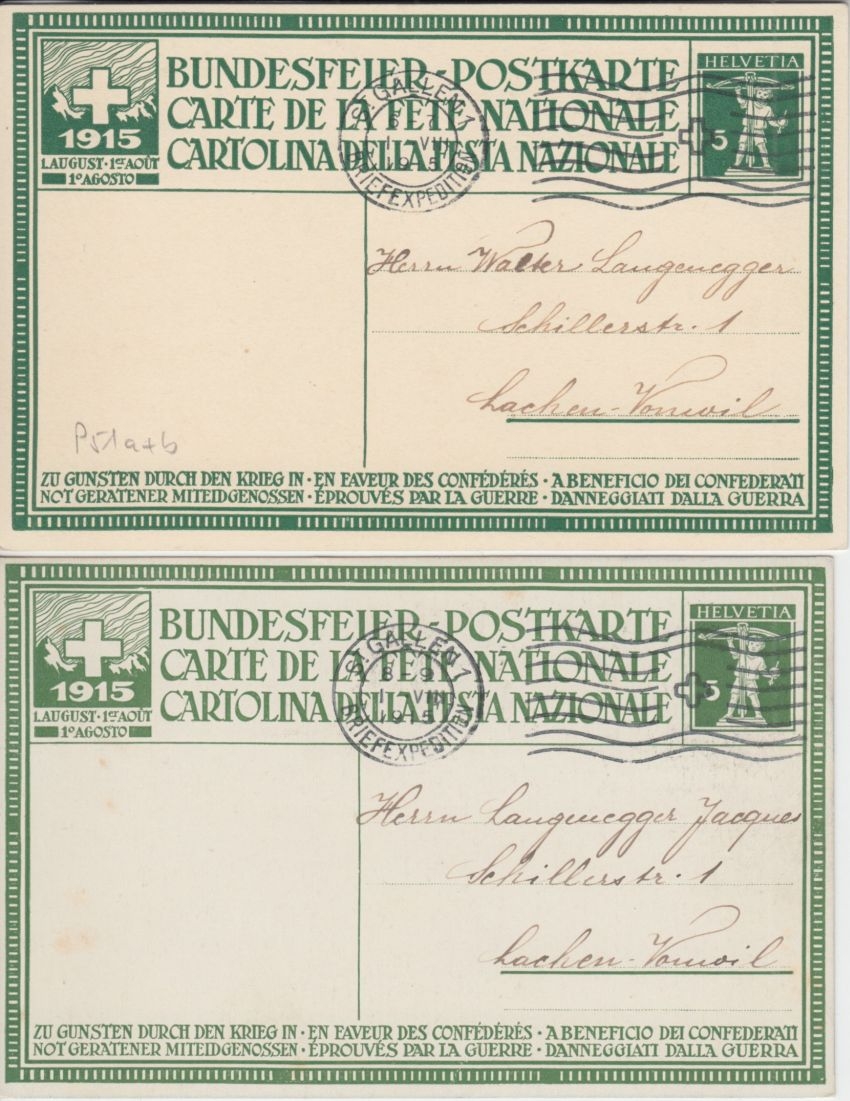 BUNDESFEIER-POSTKARTE
CARTE DE LA FÊTE NATIONALE
CARTOLINA DELLA FESTA NAZIONALE
1915
1.AUGUST·1ER AOÛT
1º AGOSTO
HELVETIA
5
ST. GALLEN 1
1 VIII
1915
BRIEFEXPEDITION
Herrn Walter Langenegger
Schillerstr. 1
Lachen-Vonwil
P51a+b
ZU GUNSTEN DURCH DEN KRIEG IN · EN FAVEUR DES CONFÉDÉRÉS · A BENEFICIO DEI CONFEDERATI
NOT GERATENER MITEIDGENOSSEN · ÉPROUVÉS PAR LA GUERRE · DANNEGGIATI DALLA GUERRA
BUNDESFEIER-POSTKARTE
CARTE DE LA FÊTE NATIONALE
CARTOLINA DELLA FESTA NAZIONALE
1915
1.AUGUST·1ER AOÛT
1º AGOSTO
HELVETIA
5
ST. GALLEN 1
8-9
1 VIII
1915
BRIEFEXPEDITION
Herrn Langenegger Jacques
Schillerstr. 1
Lachen-Vonwil
ZU GUNSTEN DURCH DEN KRIEG IN · EN FAVEUR DES CONFÉDÉRÉS · A BENEFICIO DEI CONFEDERATI
NOT GERATENER MITEIDGENOSSEN · ÉPROUVÉS PAR LA GUERRE · DANNEGGIATI DALLA GUERRA